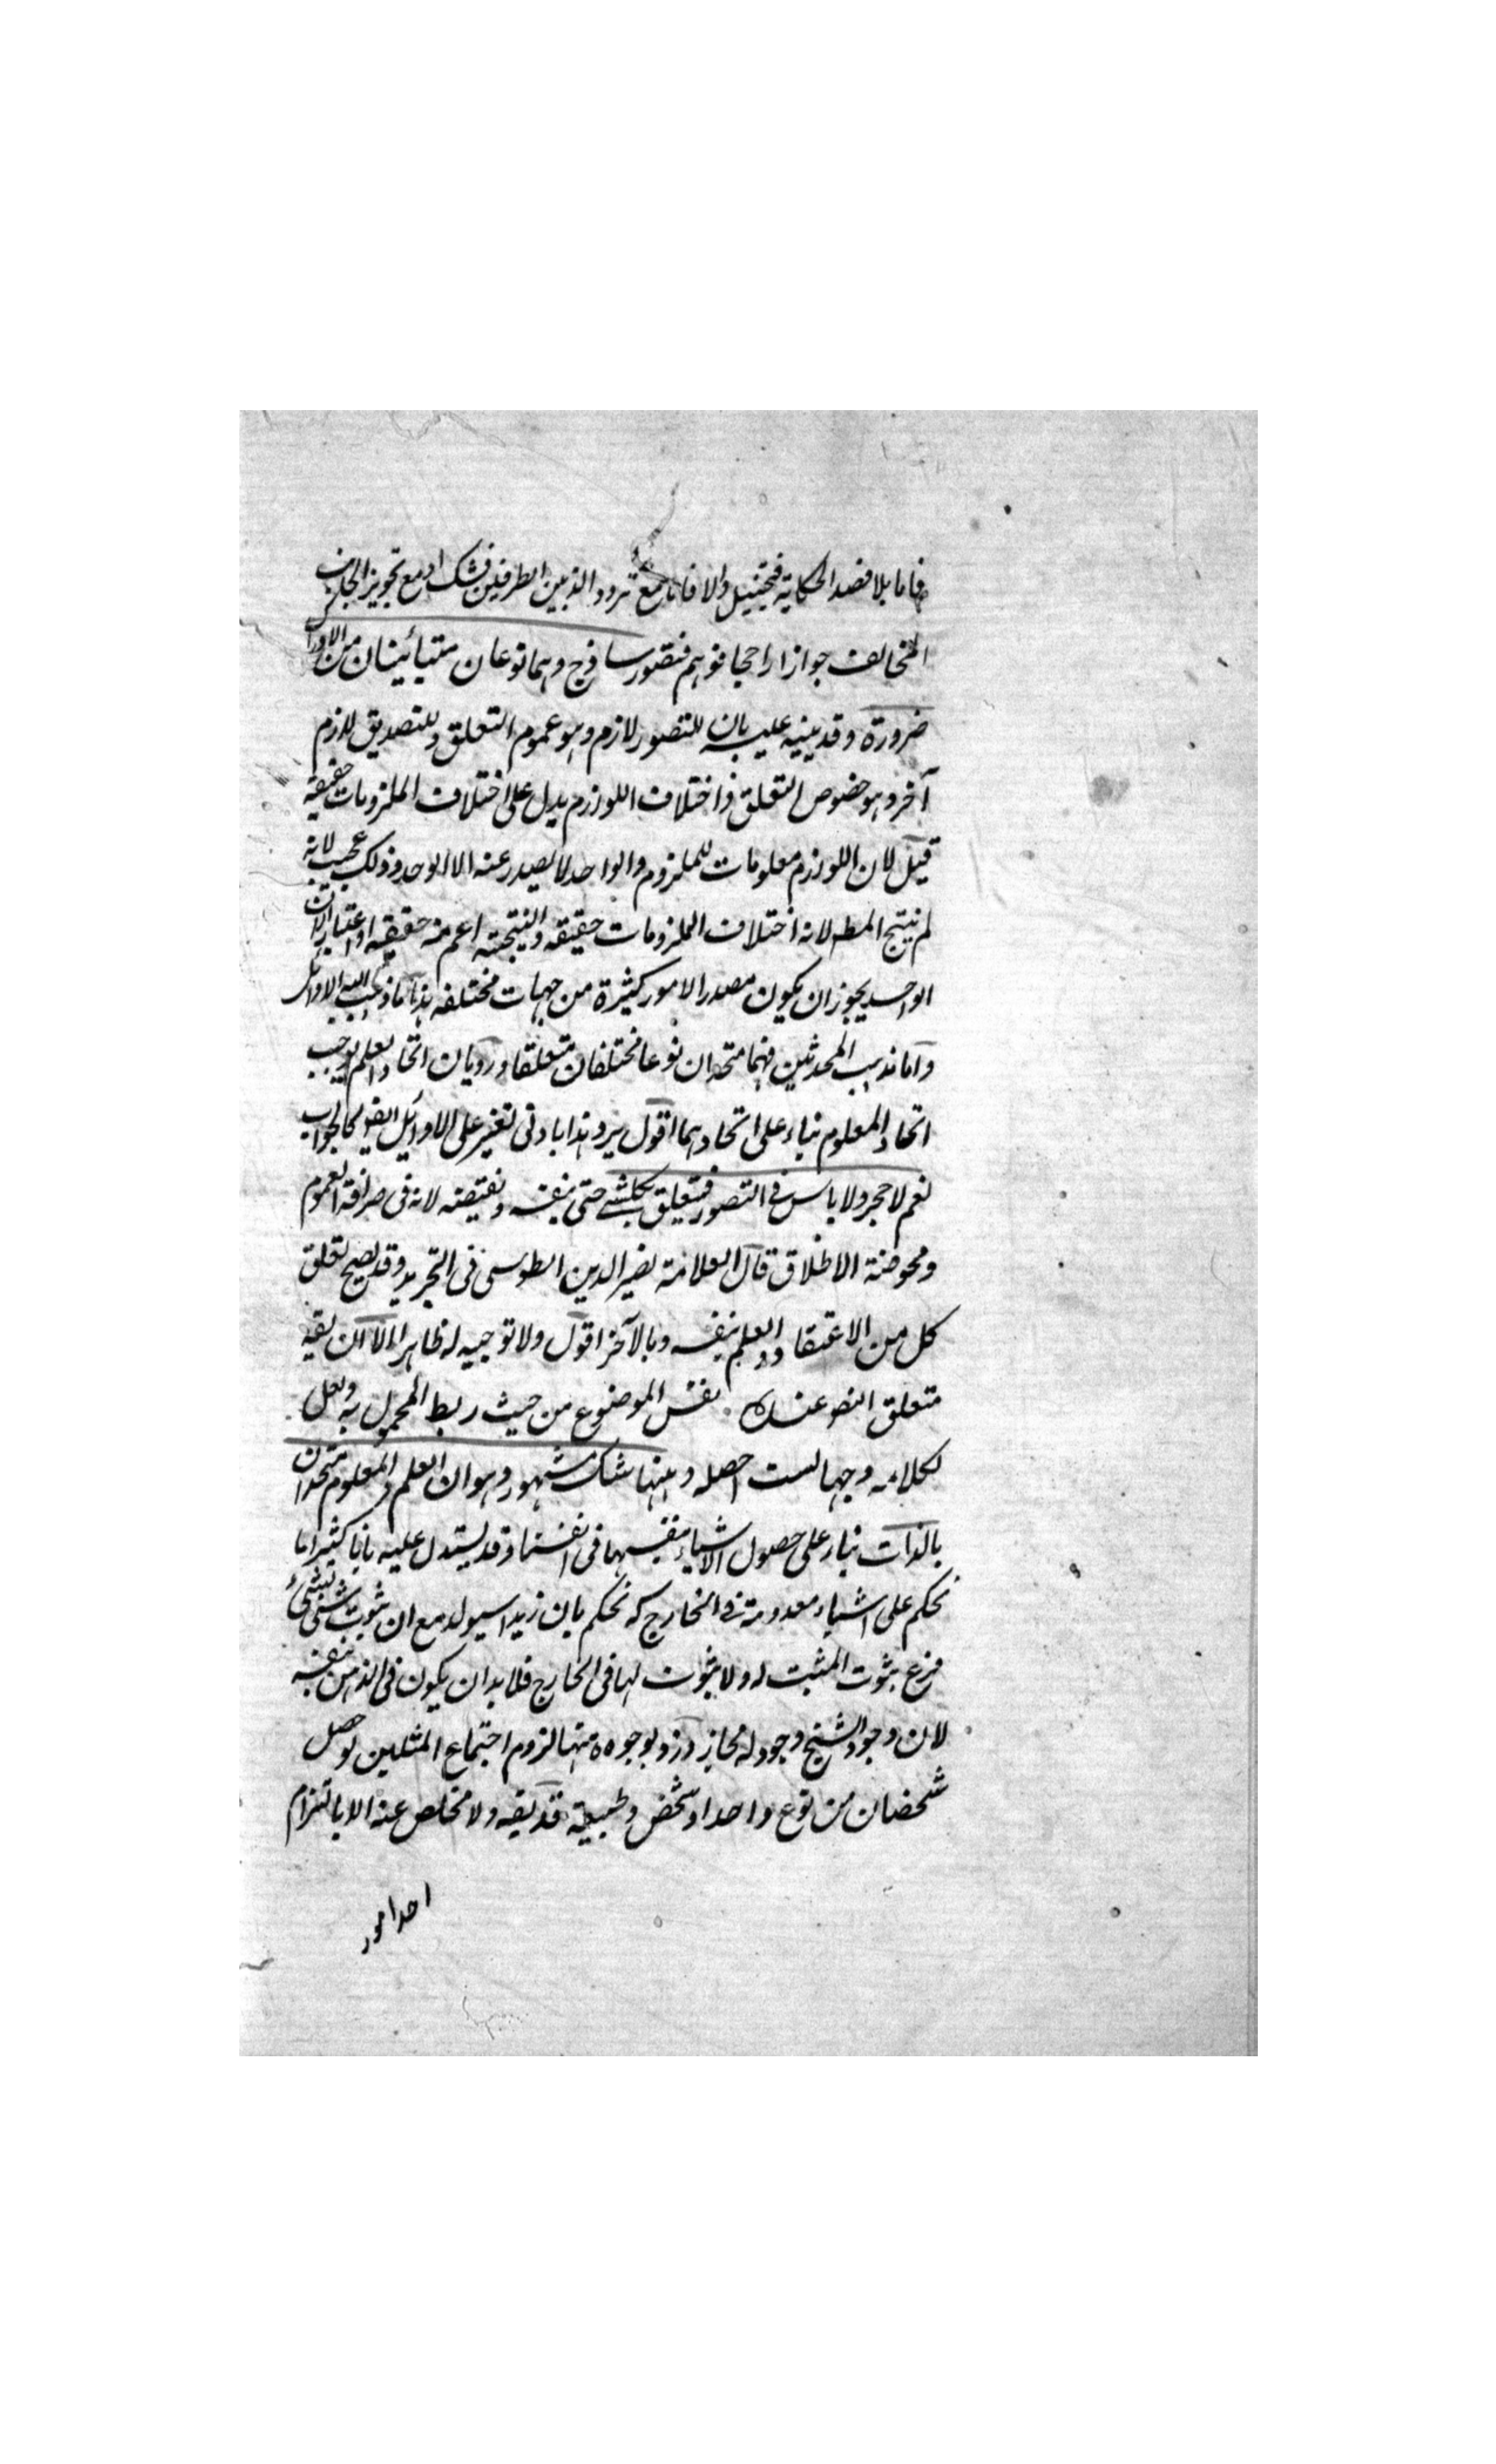 فاما بلا قصد الحكاية فتخييل والا فاما مع تردد الذهن بين الطرفين فشك او مع تجويز الجانب
المخالف جوازا راجحا فوهم فتصور ساذج وهما نوعان متبائينان من الادراك
ضرورة وقد ينبه عليه بان للتصور لازم وهو عموم التعلق وللتصديق لازم
آخر وهو خصوص التعلق واختلاف اللوازم يدل على اختلاف الملزومات حقيقة
قيل لان اللوازم معلومات للملزوم والواحد لا يصدر عنه الا الواحد وذلك عجيب لانه
لم ينتج المط لانه اختلاف الملزومات حقيقه والنتيجته اعم منه حقيقه او اعتبارا لان
الواحد يجوز ان يكون مصدر الامور كثيرة من جهات مختلفه هذا ما ذهب اليه الاوائل
واما مذهب المحدثين فهما متحدان نوعا مختلفان متعلقا ورد بان اتحاد العلم يوجب
اتحاد المعلوم بناء على اتحادهما اقول يرد هذا بادنى تغير على الاوائل ايضو كالجواب
نعم لا حجر ولا باس فى التصور فيتعلق بكلشئ حتى بنفسه ونقيضه لانه فى صرافة العموم
ومحوضة الاطلاق قال العلامة نصير الدين الطوسى فى التجريد وقد يصح تعلق
كل من الاعتقاد والعلم بنفسه وبالآخر اقول ولا توجيه له ظاهرا الا ان يقيد
متعلق التصو عنده نفس الموضوع من حيث ربط المحمول به ولعل
لكلامه وجها لست احصله وههنا شك مشهور وهو ان العلم والمعلوم متحدان
بالذات بناء على حصول الاشياء بنفسها فى انفسنا وقد يستدل عليه بانا كثيرا ما
نحكم على اشياء معدومة فى الخارج كه نحكم بان زيدا سيولد مع ان ثبوت شئ لشئ
فرع ثبوت المثبت له ولا ثبوت لها فى الخارج فلا بد ان يكون فى الذهن بنفسه
لان وجود الشبح وجود له مجازا ورد بوجوه منها لزوم اجتماع المثلين لو حصل
شخصان من نوع واحد او شخص وطبيعة قد يقه ولا مخلص عنه الا بالتزام
احد امور